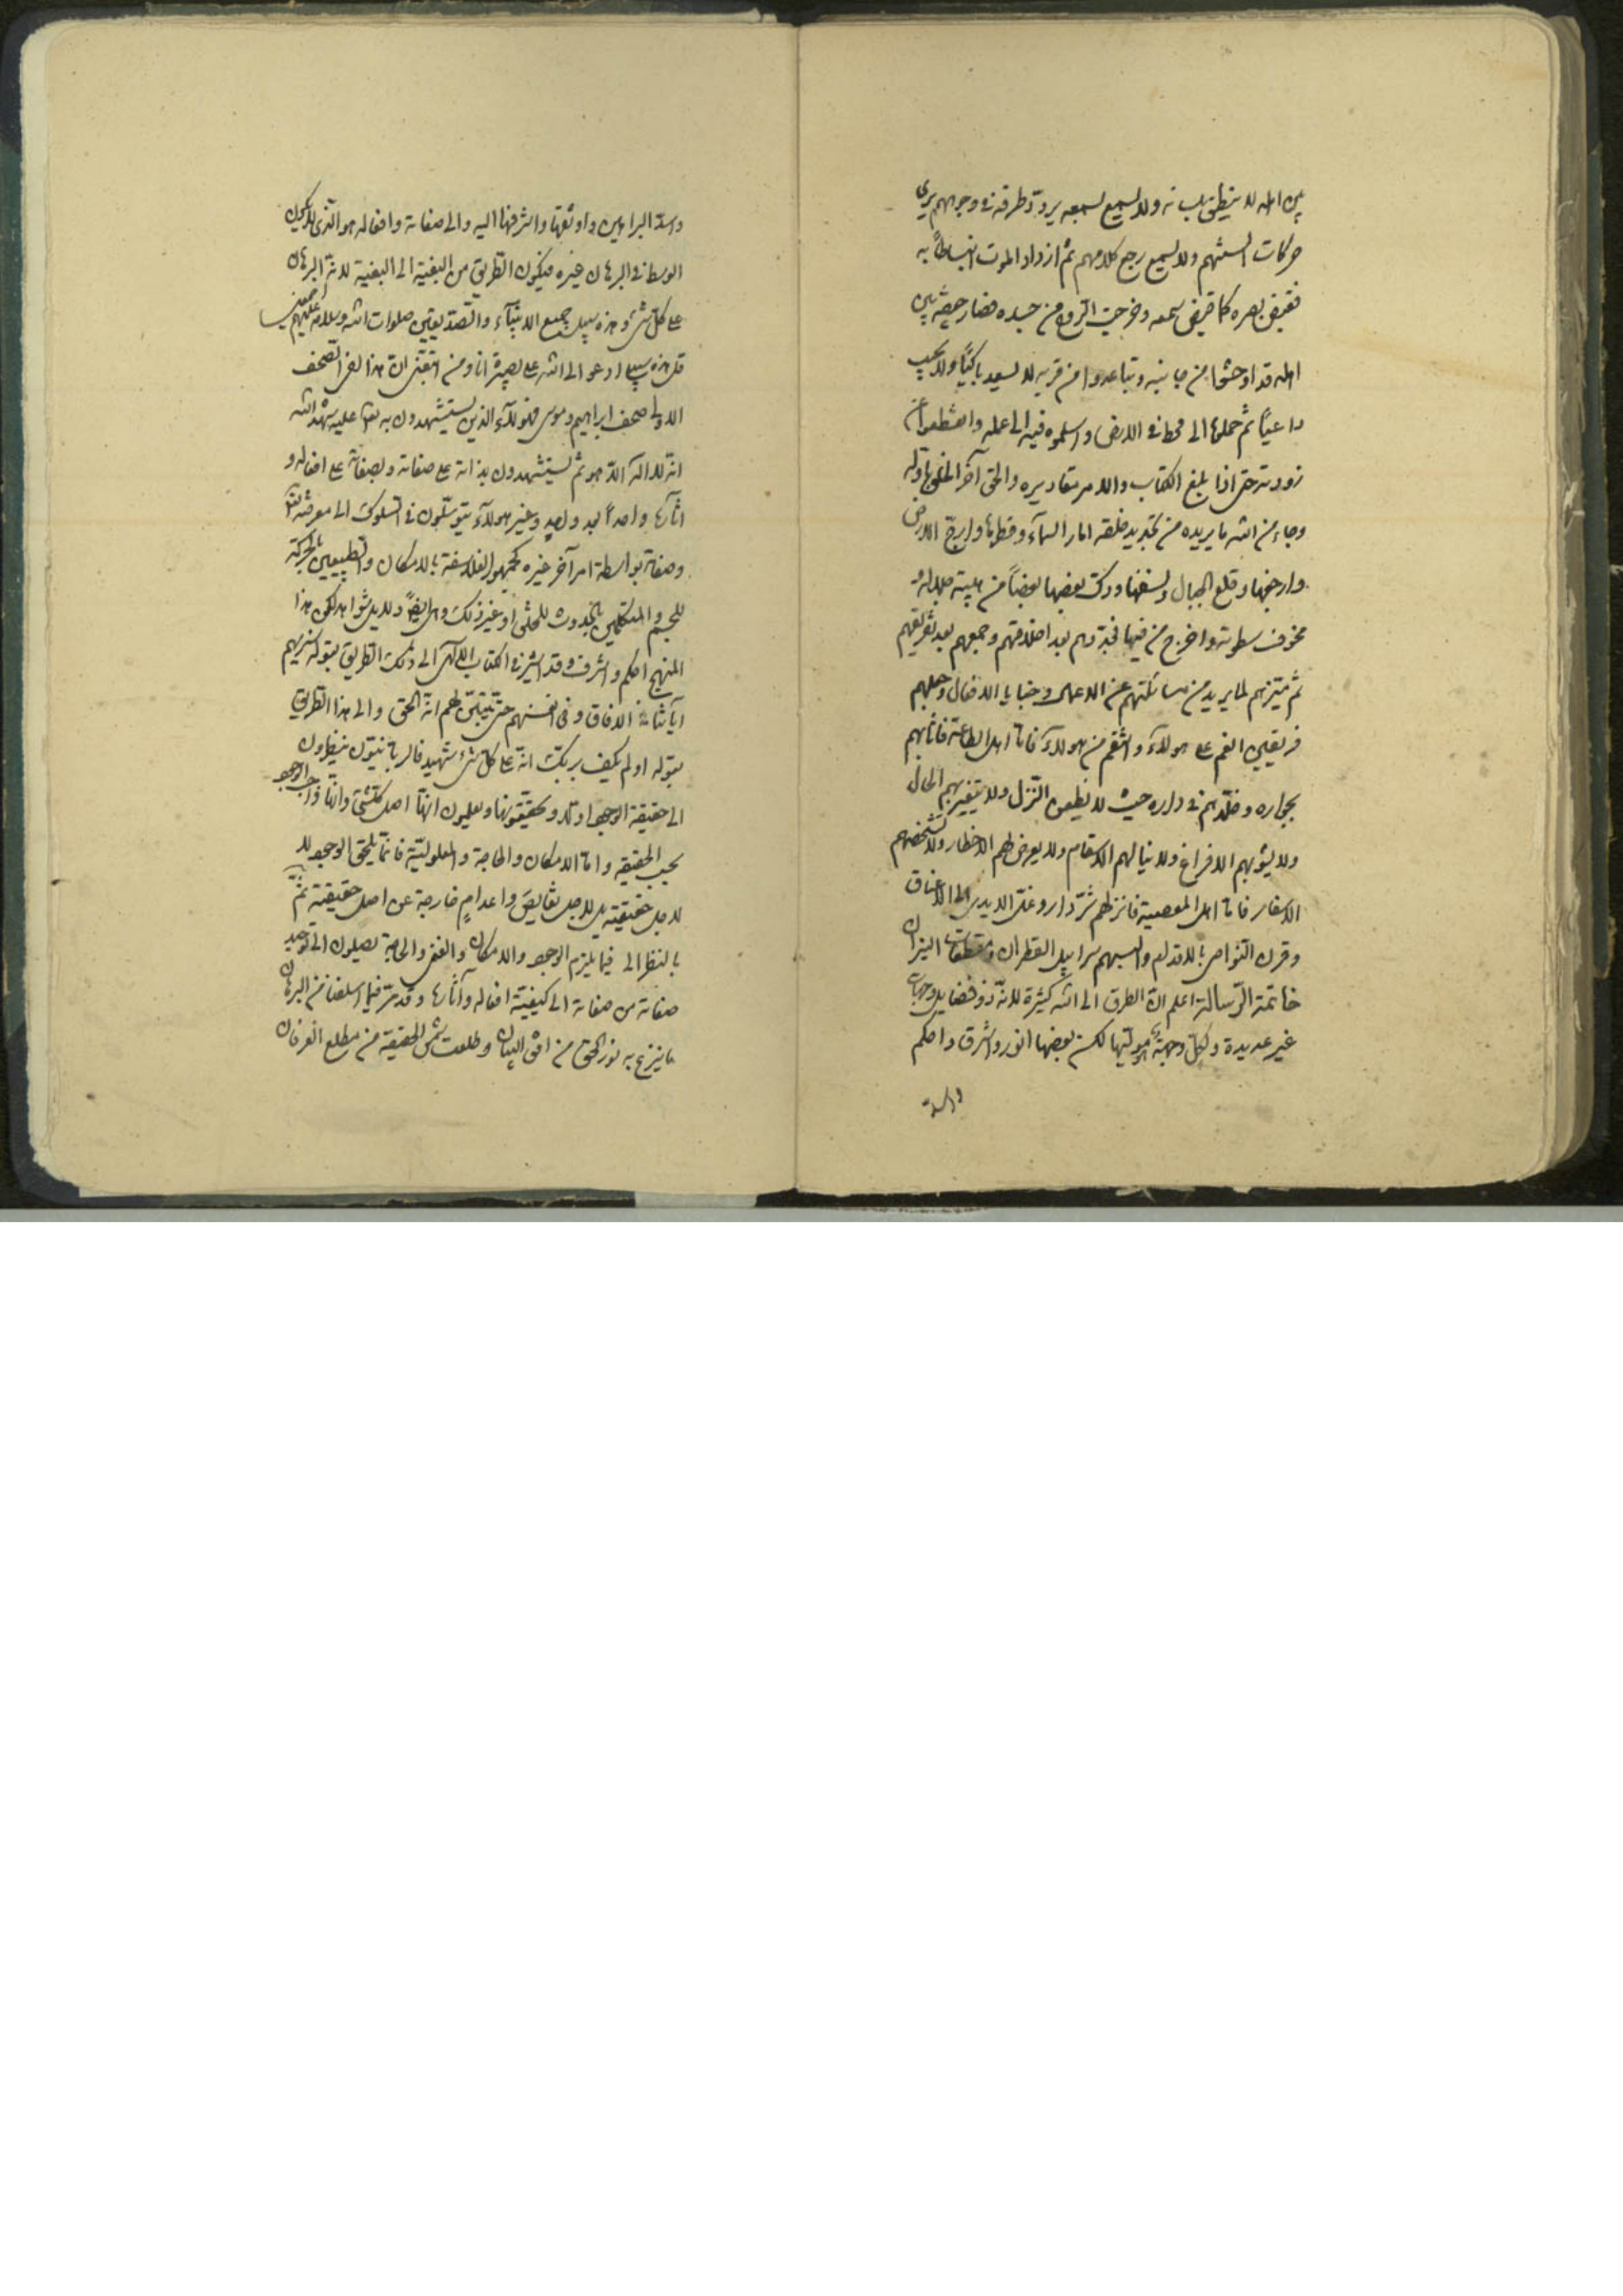 بين اهله لا ينطق بلسانه ولا يسمع بسمعه يردد طرفه في وجوههم يرى
حركات السنتهم ولا يسمع رجع كلامهم ثم ازداد الموت التياطاً به
فقبض بصره كما قبض سمعه وخرجت الروح من جسده فصار جيفة بين
اهله قد اوحشوا من جانبه وتباعدوا من قربه لا يسعد باكيًا ولا يجيب
داعيًا ثم حملوه الى مخط في الارض واسلموه فيه الى عمله وانقطعوا عن
زورته حتى اذا بلغ الكتاب والامر مقاديره والحق آخر الخلق باوله
وجاء من الله ما يريده من تجديد خلقه امار السمآء وفطرها وارجّ الارض
وارجفها وقلع الجبال ونسفها ودك بعضها بعضاً من هيبة جلاله و
مخوف سطوته واخرج من فيها فجددهم بعد اخلاقهم وجمعهم بعد تفريقهم
ثم ميّزهم لما يريد من مسائلتهم عن الاعمال وخبايا الافعال وجعلهم
فريقين انعم على هولآء وانتقم من هولآء فاما اهل الطاعة فاثابهم
بجواره وخلّدهم في داره حيث لا يظعن النزل ولا يتغير بهم الحال
ولا ينوبهم الافزاع ولا ينالهم الاسقام ولا يعرض لهم الاخطار ولا تشخصهم
الاسفار فاما اهل المعصية فانزلهم شرّ دار وغلّ الايدي الى الاعناق
وقرن النواصي بالاقدام والبسهم سرابيل القطران ومقطعات النيران
خاتمة الرّسالة اعلم انّ الطرق الى الله كثيرة لانّه ذو فضايل وجهات
غير عديدة ولكلّ وجهة هو موليها لكن بعضها انور واشرق واحكم
واسد
واسدّ البراهين واوثقها واشرفها اليه والى صفاته وافعاله هو الذى لا يكون
الوسط في البرهان غيره فيكون الطريق من البغية الى البغية لانه البرهان
على كلّ شئ وهذه سبيل جميع الانبيآء والصديقين صلوات الله وسلامه عليهم اجمعين
قل هذه سبيلى ادعو الى الله على بصيرة انا ومن اتبعنى انّ هذا لفى الصحف
الاولى صحف ابراهيم وموسى فهولآء الذين يستشهدون به تعالى عليه شهد الله
انّه لا اله الّا هو ثم يستشهدون بذاته على صفاته وبصفاته على افعاله و
آثاره واحداً بعد واحد وغير هولآء يتوسّلون في السلوك الى معرفته تعالى
وصفاته بواسطة امر آخر غيره كجمهور الفلاسفة بالامكان والطبيعيين بالحركة
للجسم والمتكلمين بالحدوث للخلق او غير ذلك وهى ايضاً دلايل وشواهد لكن هذا
المنهج احكم واشرف وقد اشير في الكتاب الالهى الى تلك الطريق بقوله سنريهم
آياتنا في الافاق وفي انفسهم حتى يتبيّن لهم انّه الحق والى هذا الطريق
بقوله اولم يكف بربك انّه على كلّ شئ شهيد فالربانيون ينظرون
الى حقيقة الوجود اولاً ويحققونها ويعلمون انها اصل كلّ شئ وانها واجب الوجود
بحسب الحقيقه واما الامكان والحاجة والمعلوليّة فانما يلحق الوجود لا
لاجل حقيقته بل لاجل نقايص واعدام خارجة عن اصل حقيقته ثم
بالنظر الى فيما يلزم الوجوب والامكان والغنى والحاجة يصلون الى توحيد
صفاته ومن صفاته الى كيفيّة افعاله وآثاره وقد مرّ فيما اسلفنا من البرهان
ما بزغ به نور الحق من افق البيان وطلعت شمس الحقيقة من مطلع العرفان